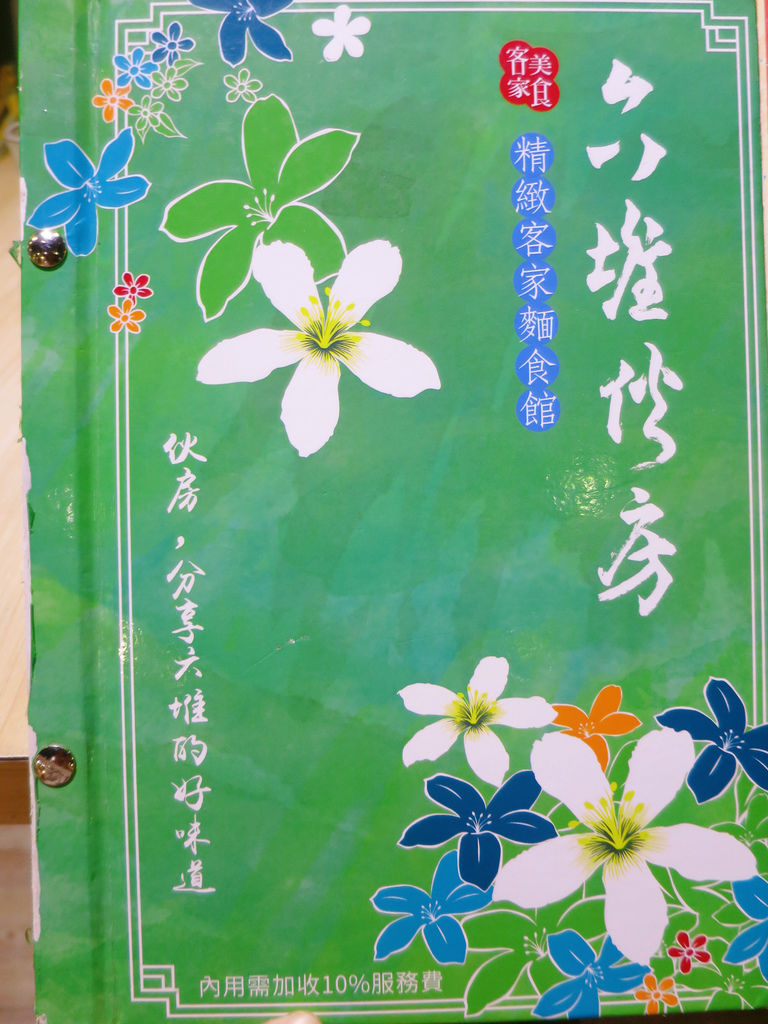 六堆伙房
客家美食
精緻客家麵食館
伙房，分享六堆的好味道
內用需加收10%服務費